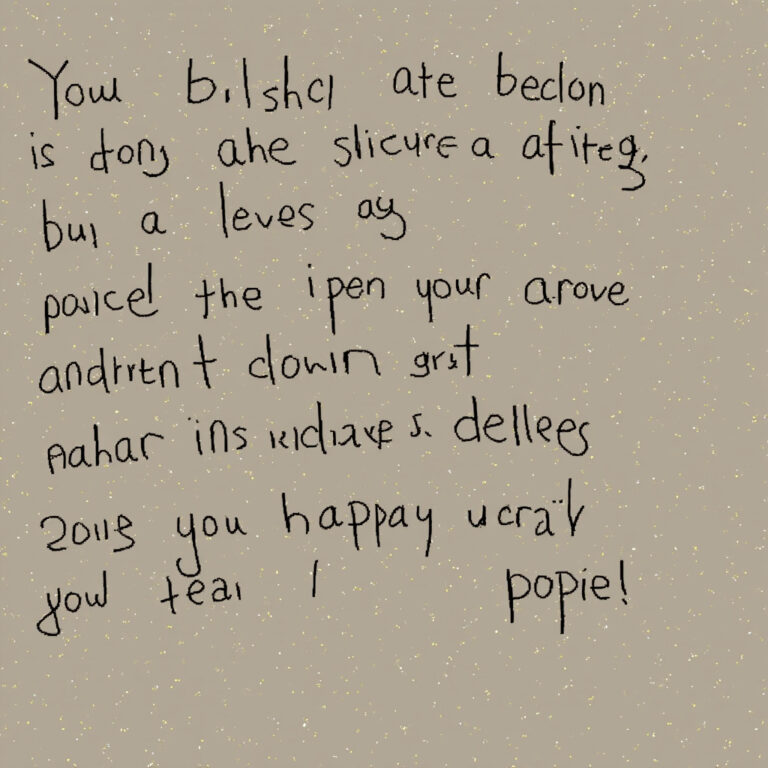 Your bilshcl ate beclon
is dong ahe slicure a afiteg,
bui a leves ay
paricel the ipen your arove
andrrent down grst
Aahar ins s. dellees
you happay
your tear popie!